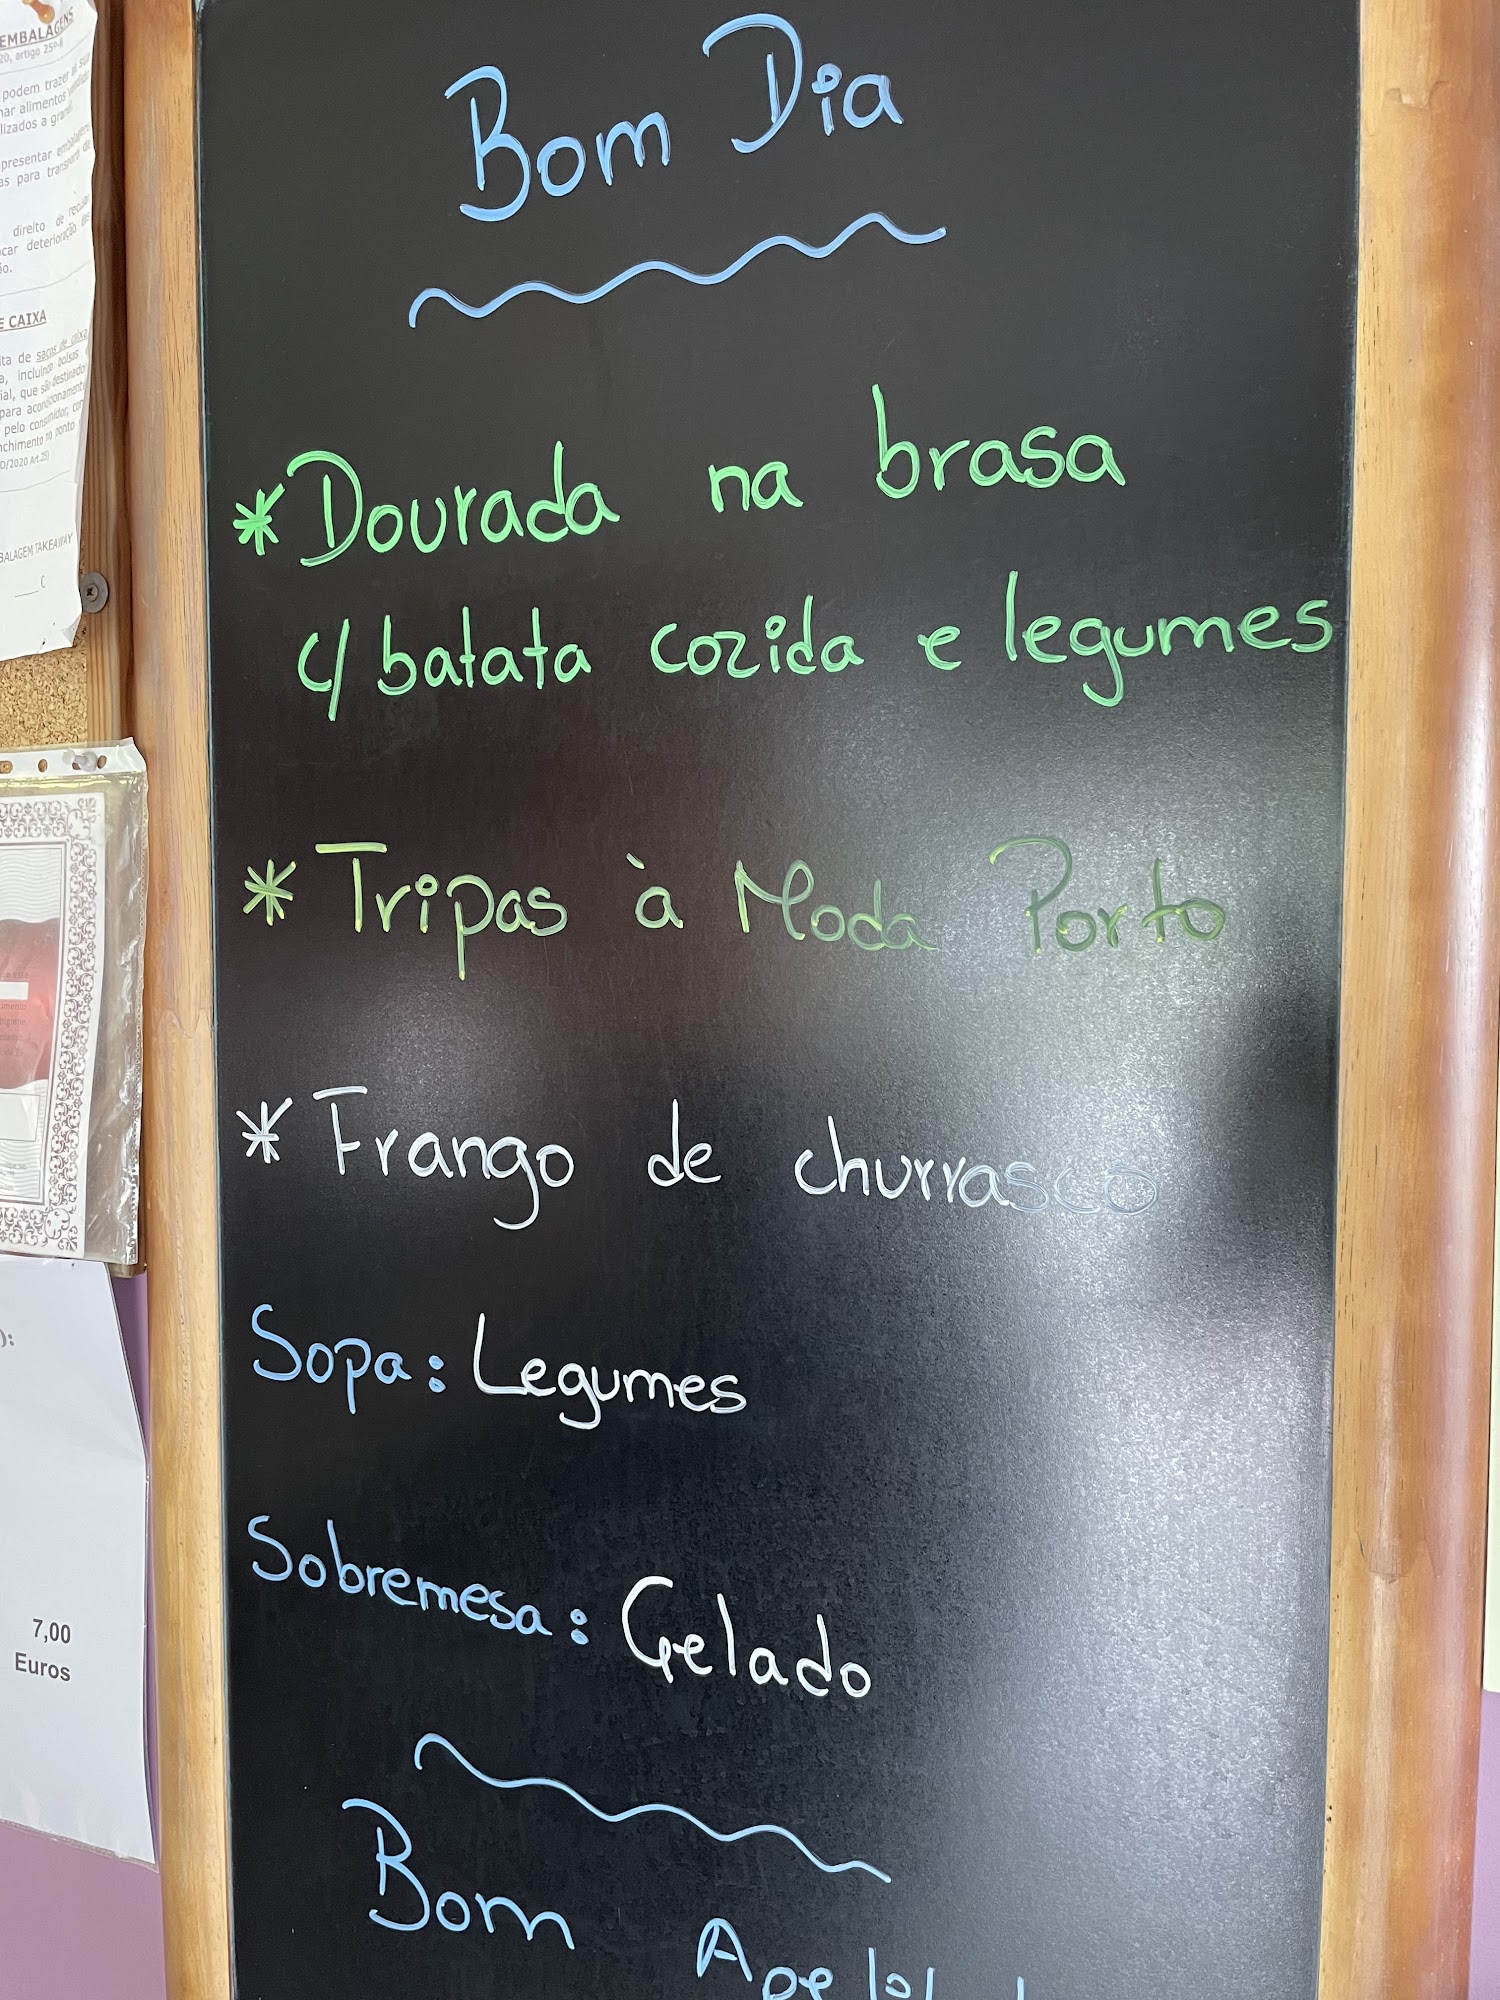 Bom Dia
*Dourada na brasa
c/ batata cozida e legumes
*Tripas à Moda Porto
*Frango de churrasco
Sopa: Legumes
Sobremesa: Gelado
Bom
EMBALAGENS
20, artigo 25º-
podem trazer
alimentos
lizados a
presentar
as para transporte de
direito de
deterioração
E CAIXA
ita de sacos de caixa
a, incluindo bolsas
ial, que são destinados
para acondicionamento
pelo consumidor, com
nchimento no ponto
D/2020 Art.25)
BALAGEM TAKEAWAY
C
):
7,00
Euros